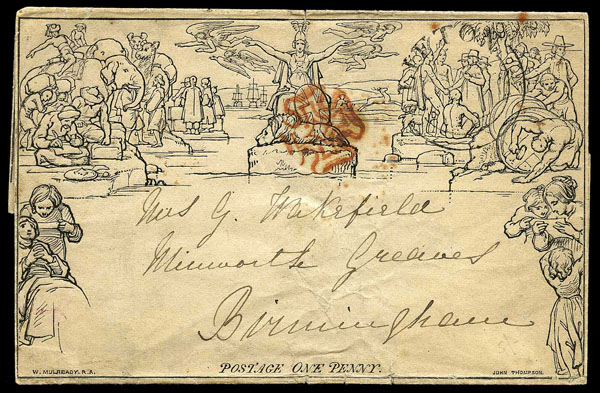 Mrs G. Wakefield
Minworth Greaves
Birmingham
POSTAGE ONE PENNY.
W. MULREADY. R.A.
JOHN THOMPSON.